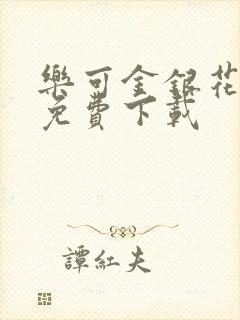 樂可金銀花
免費下載
譚紅夫